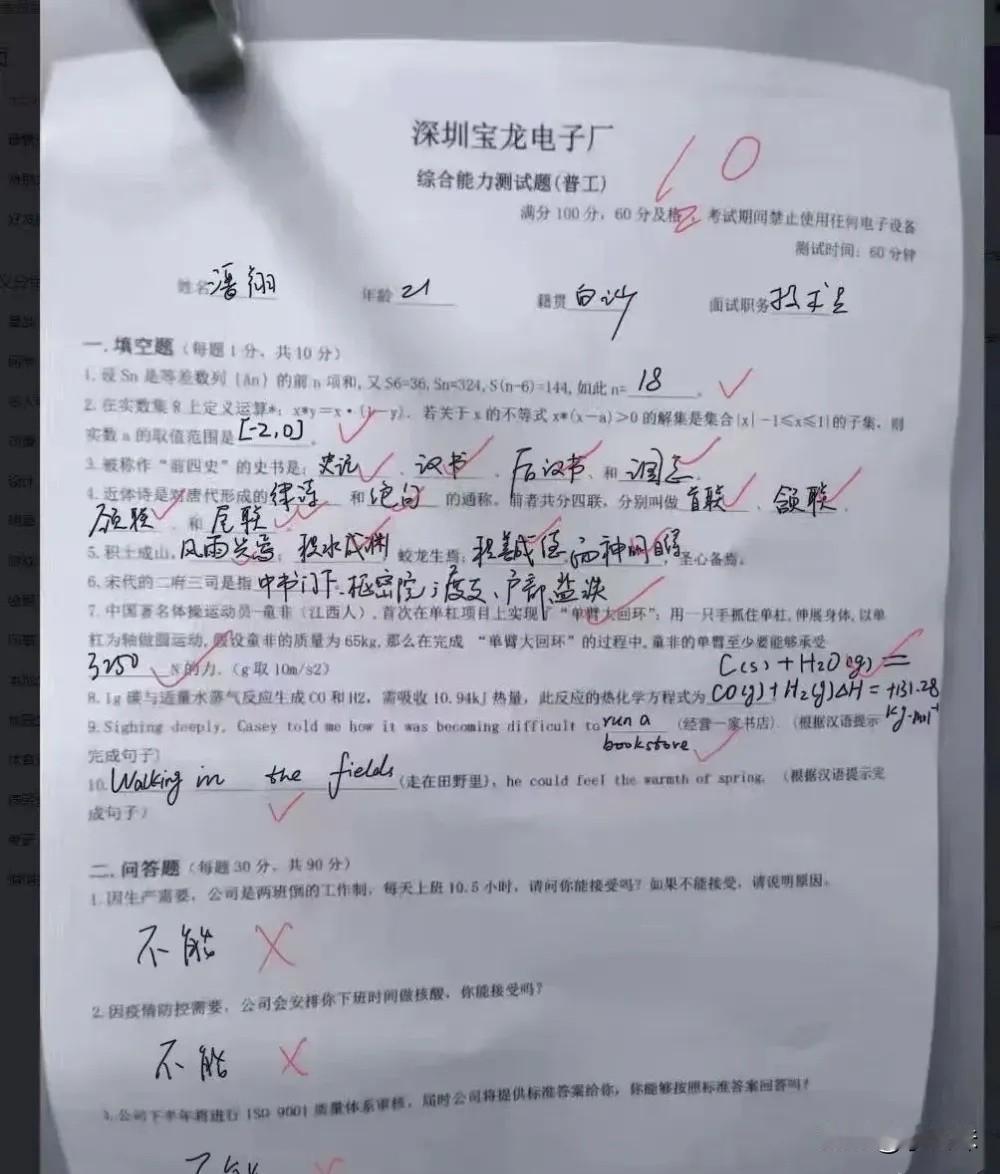 深圳宝龙电子厂
10
综合能力测试题(普工)
满分100分，60分及格，考试期间禁止使用任何电子设备
测试时间：60分钟
姓名潘翔 年龄21 籍贯 面试职务技术员
一.填空题（每题1分、共10分）
1.设Sn是等差数列{An}的前n项和,又S6=36,Sn=324,S(n-6)=144,如此n=18。
2.在实数集R上定义运算*：x*y=x·(1-y)．若关于x的不等式x*(x-a)>0的解集是集合{x|-1≤x≤1}的子集，则
实数a的取值范围是[-2,0]。
3.被称作“前四史”的史书是：史记、汉书、后汉书、和 三国志
4.近体诗是对唐代形成的律诗 和绝句 的通称。前者共分四联，分别叫做首联、颔联、
颈联 和尾联。
5.积土成山，风雨兴焉；积水成渊 蛟龙生焉；积善成德,而神明自得，圣心备焉。
6.宋代的二府三司是指中书门下、枢密院；度支、户部 盐铁
7.中国著名体操运动员-童非（江西人）,首次在单杠项目上实现了“单臂大回环”：用一只手抓住单杠,伸展身体,以单
杠为轴做圆运动,假设童非的质量为65kg,那么在完成“单臂大回环”的过程中,童非的单臂至少要能够承受
3250 N的力.（g取10m/s2）
8.1g碳与适量水蒸气反应生成CO和H2，需吸收10.94kJ热量，此反应的热化学方程式为C(s)+H2O(g)=
CO(g)+H2(g)ΔH=+131.28
kg·mol-1
9.Sighing deeply, Casey told me how it was becoming difficult to run a
bookstore（经营一家书店）.（根据汉语提示
完成句子）
10.Walking in the fields(走在田野里), he could feel the warmth of spring.（根据汉语提示完
成句子）
二.问答题（每题30分、共90分）
1.因生产需要，公司是两班倒的工作制，每天上班10.5小时，请问你能接受吗？如果不能接受，请说明原因。
不能
2.因疫情防控需要，公司会安排你下班时间做核酸，你能接受吗？
不能
3.公司下半年将进行ISO 9001质量体系审核，届时公司将提供标准答案给你，你能够按照标准答案回答吗？
不能